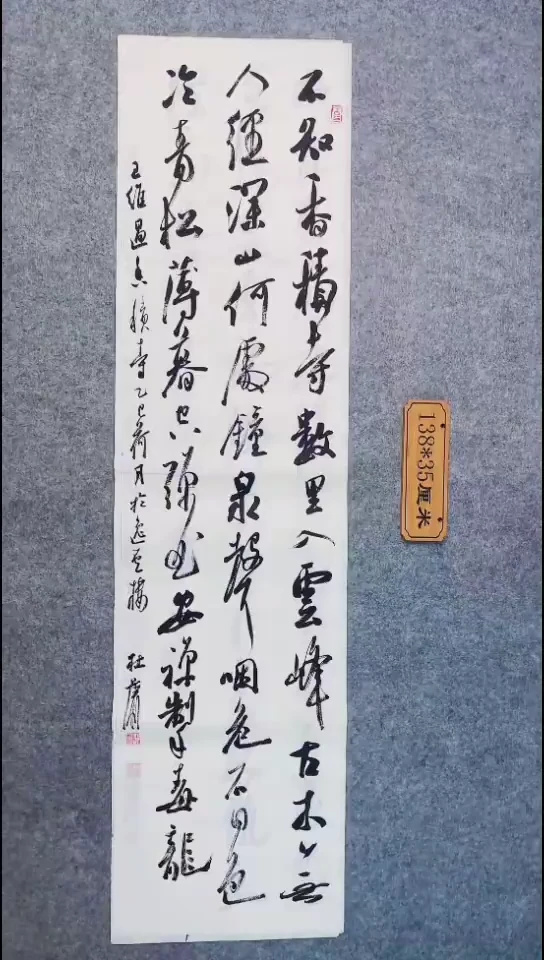 不知香積寺數里入雲峰古木無
人徑深山何處鐘泉聲咽危石日色
冷青松薄暮空潭曲安禪制毒龍
王維過香積寺乙巳荷月於樓
杜
138*35厘米